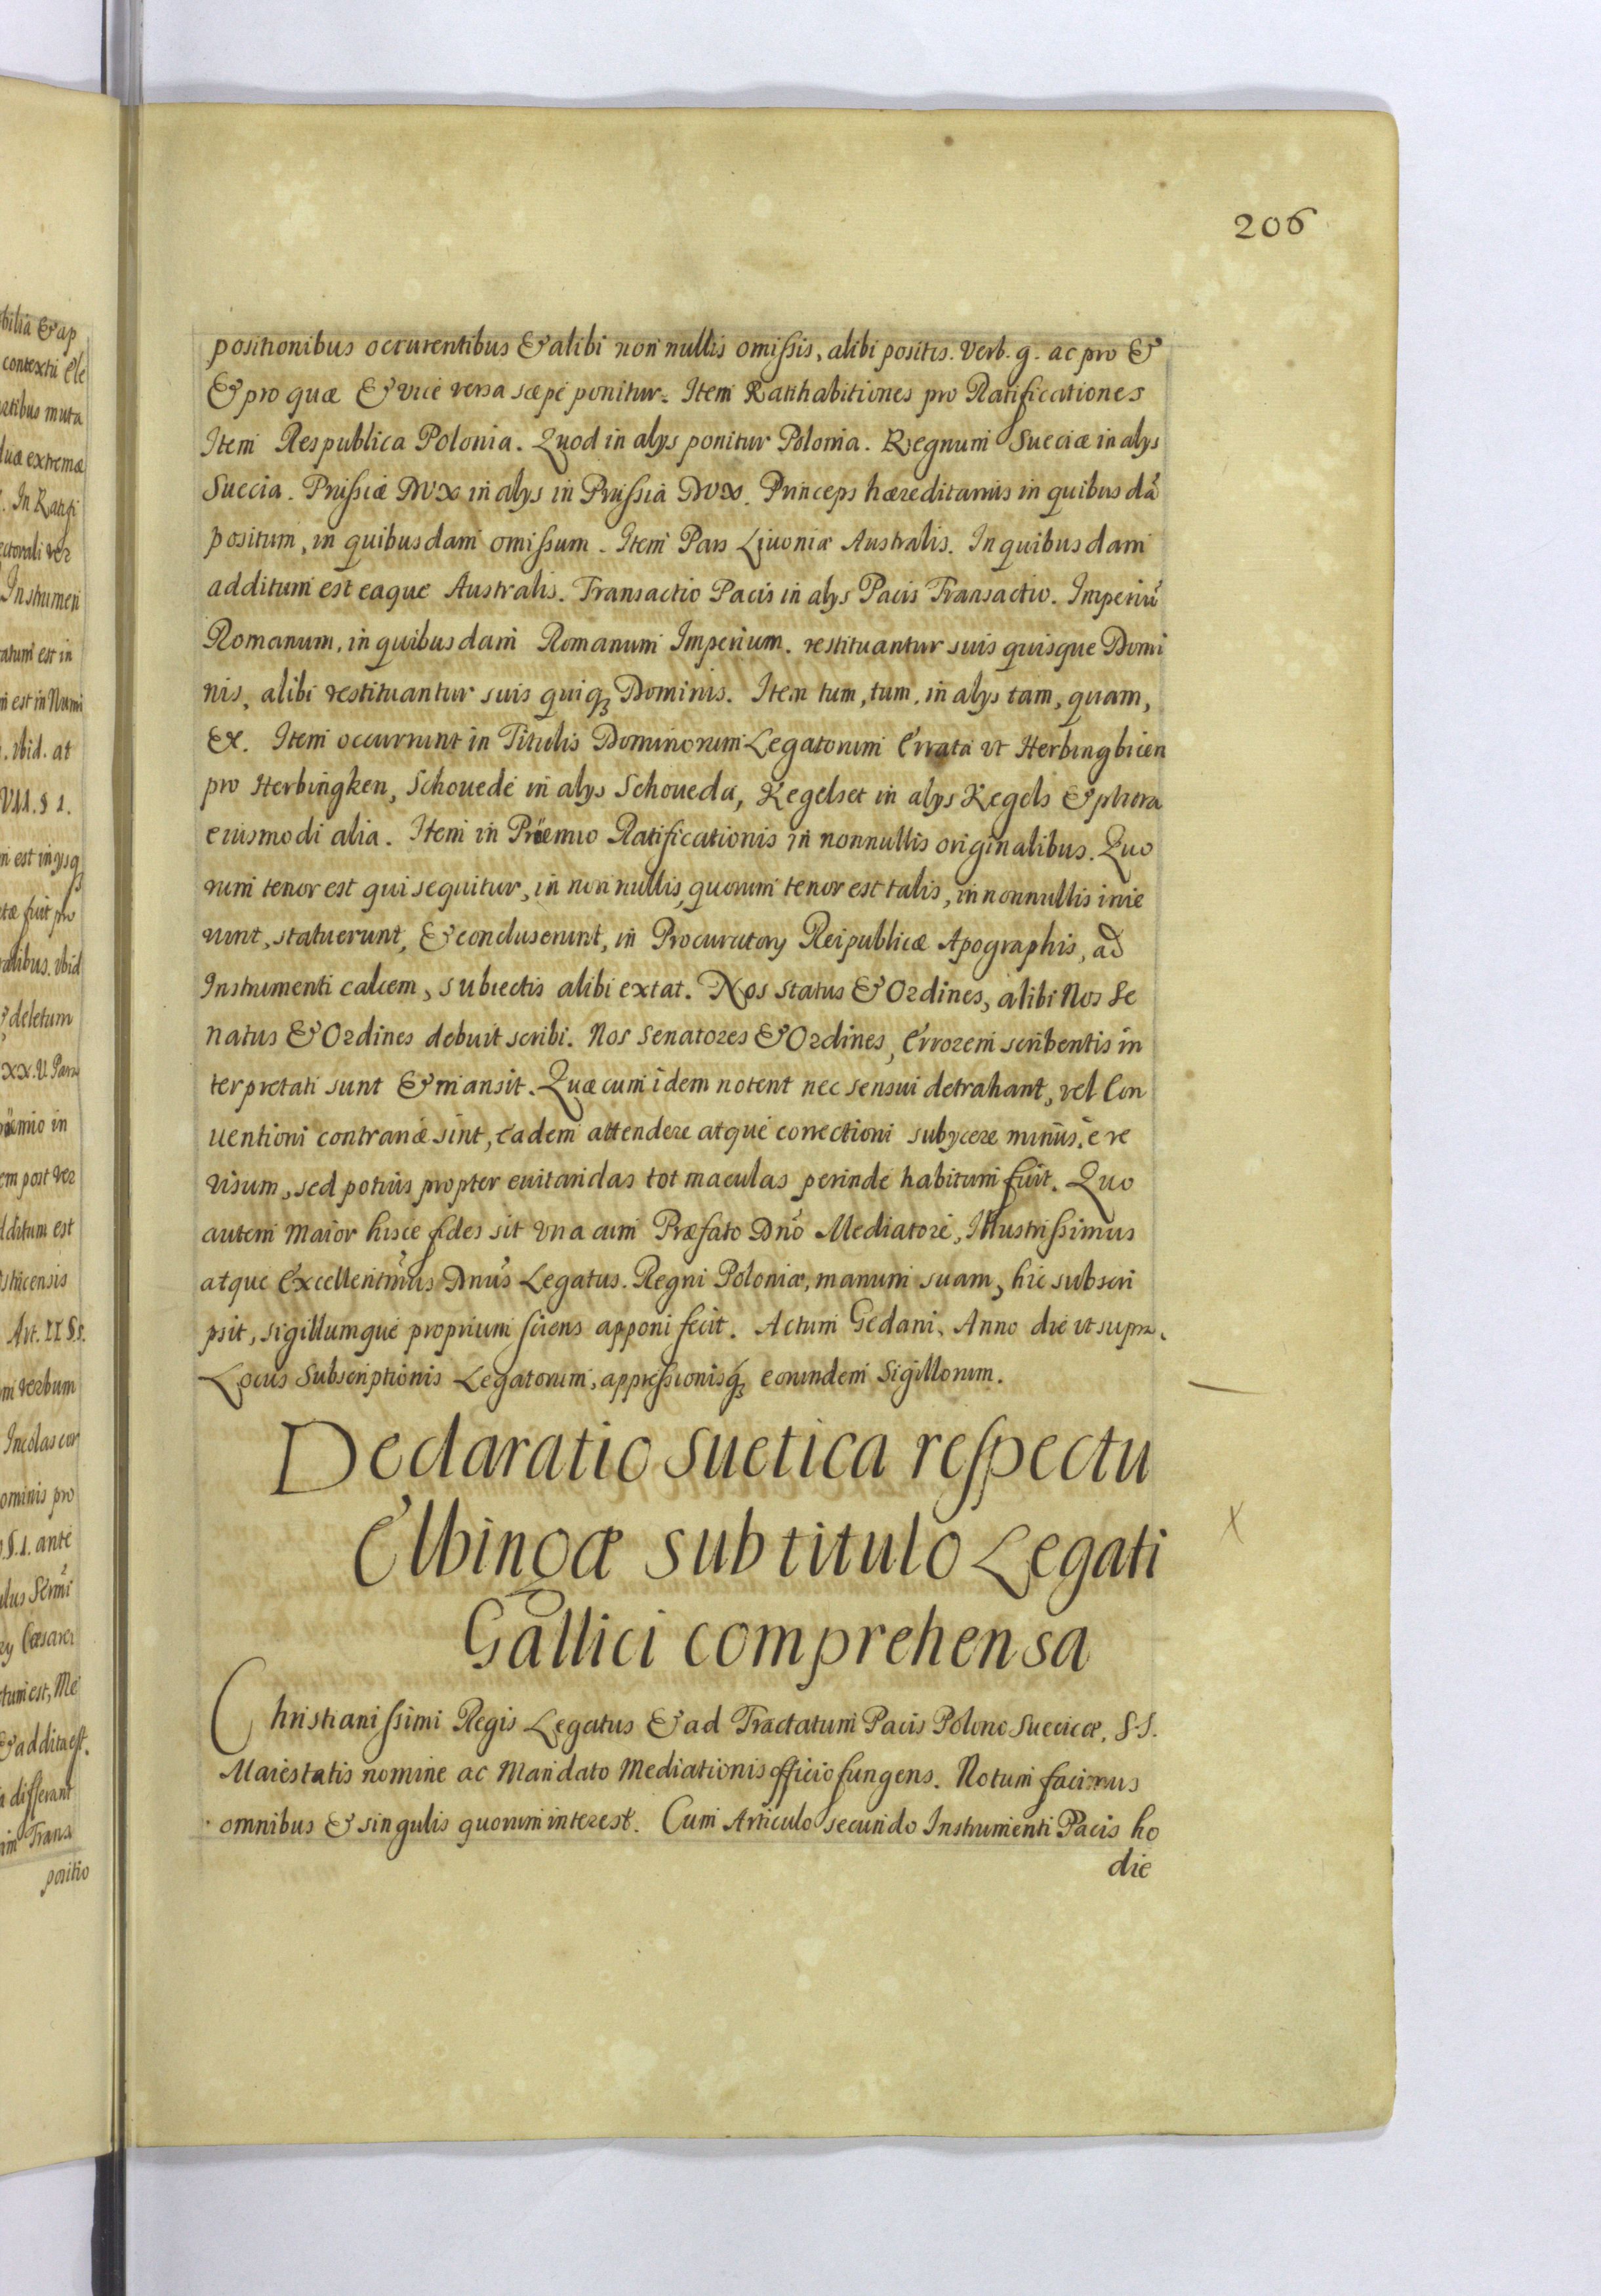 206
positionibus occurentibus & alibi non nullis omissis, alibi positis. Verb. g. ac pro &
& pro quæ & vice versa sæpe ponitur. Item Ratihabitiones pro Ratificationes
Item Respublica Polonia. Quod in alys ponitur Polonia. Regnum Sueciæ in alys
Suecia. Prussiæ Dux in alys in Prussia Dux. Princeps hæreditarius in quibus dā
positum, in quibusdam omissum. Item Pars Liuoniæ Australis. In quibusdam
additum est eaque Australis. Transactio Pacis in alys Pacis Transactio. Imperiū
Romanum, in quibusdam Romanum Imperium. restituantur suis quisque Domi
nis, alibi restituantur suis quiq; Dominis. Item tum, tum, in alys tam, quam,
&. Item occurrunt in Titulis Dominorum Legatorum Errata ut Herbingbicen
pro Herbingken, Schouede in alys Schoueda, Kegelset in alys Kegels & plura
eiusmodi alia. Item in Prœmio Ratificationis in nonnullis originalibus. Quo
rum tenor est qui sequitur, in non nullis, quorum tenor est talis, in nonnullis inie
runt, statuerunt, & concluserunt, in Procuratory Reipublicæ Apographis, ad
Instrumenti calcem, subiectis alibi extat. Nos Status & Ordines, alibi Nos Se
natus & Ordines debuit scribi. Nos Senatores & Ordines, Errorem scribentis in
terpretati sunt & mansit. Quæ cum idem notent nec sensui detrahant, vel Con
uentioni contrariæ sint, eadem attendere atque correctioni subycere minus è re
visum, sed potius propter euitandas tot maculas perinde habitum fuit. Quo
autem maior hisce fides sit una cum Præfato Dnō Mediatore, Illustrissimus
atque Excellentmūs Dnūs Legatus Regni Poloniæ, manum suam, hic subscri
psit, sigillumque proprium sciens apponi fecit. Actum Gedani, Anno die ut supra.
Locus Subscriptionis Legatorum, appressionisq; eorundem Sigillorum.
Declaratio Suetica respectu
Elbingæ sub titulo Legati
Gallici comprehensa
Christianissimi Regis Legatus & ad Tractatum Pacis Polono Suecicæ, S. S.
Maiestatis nomine ac Mandato Mediationis officio fungens. Notum facimus
omnibus & singulis quorum interest. Cum Articulo secundo Instrumenti Pacis ho
die